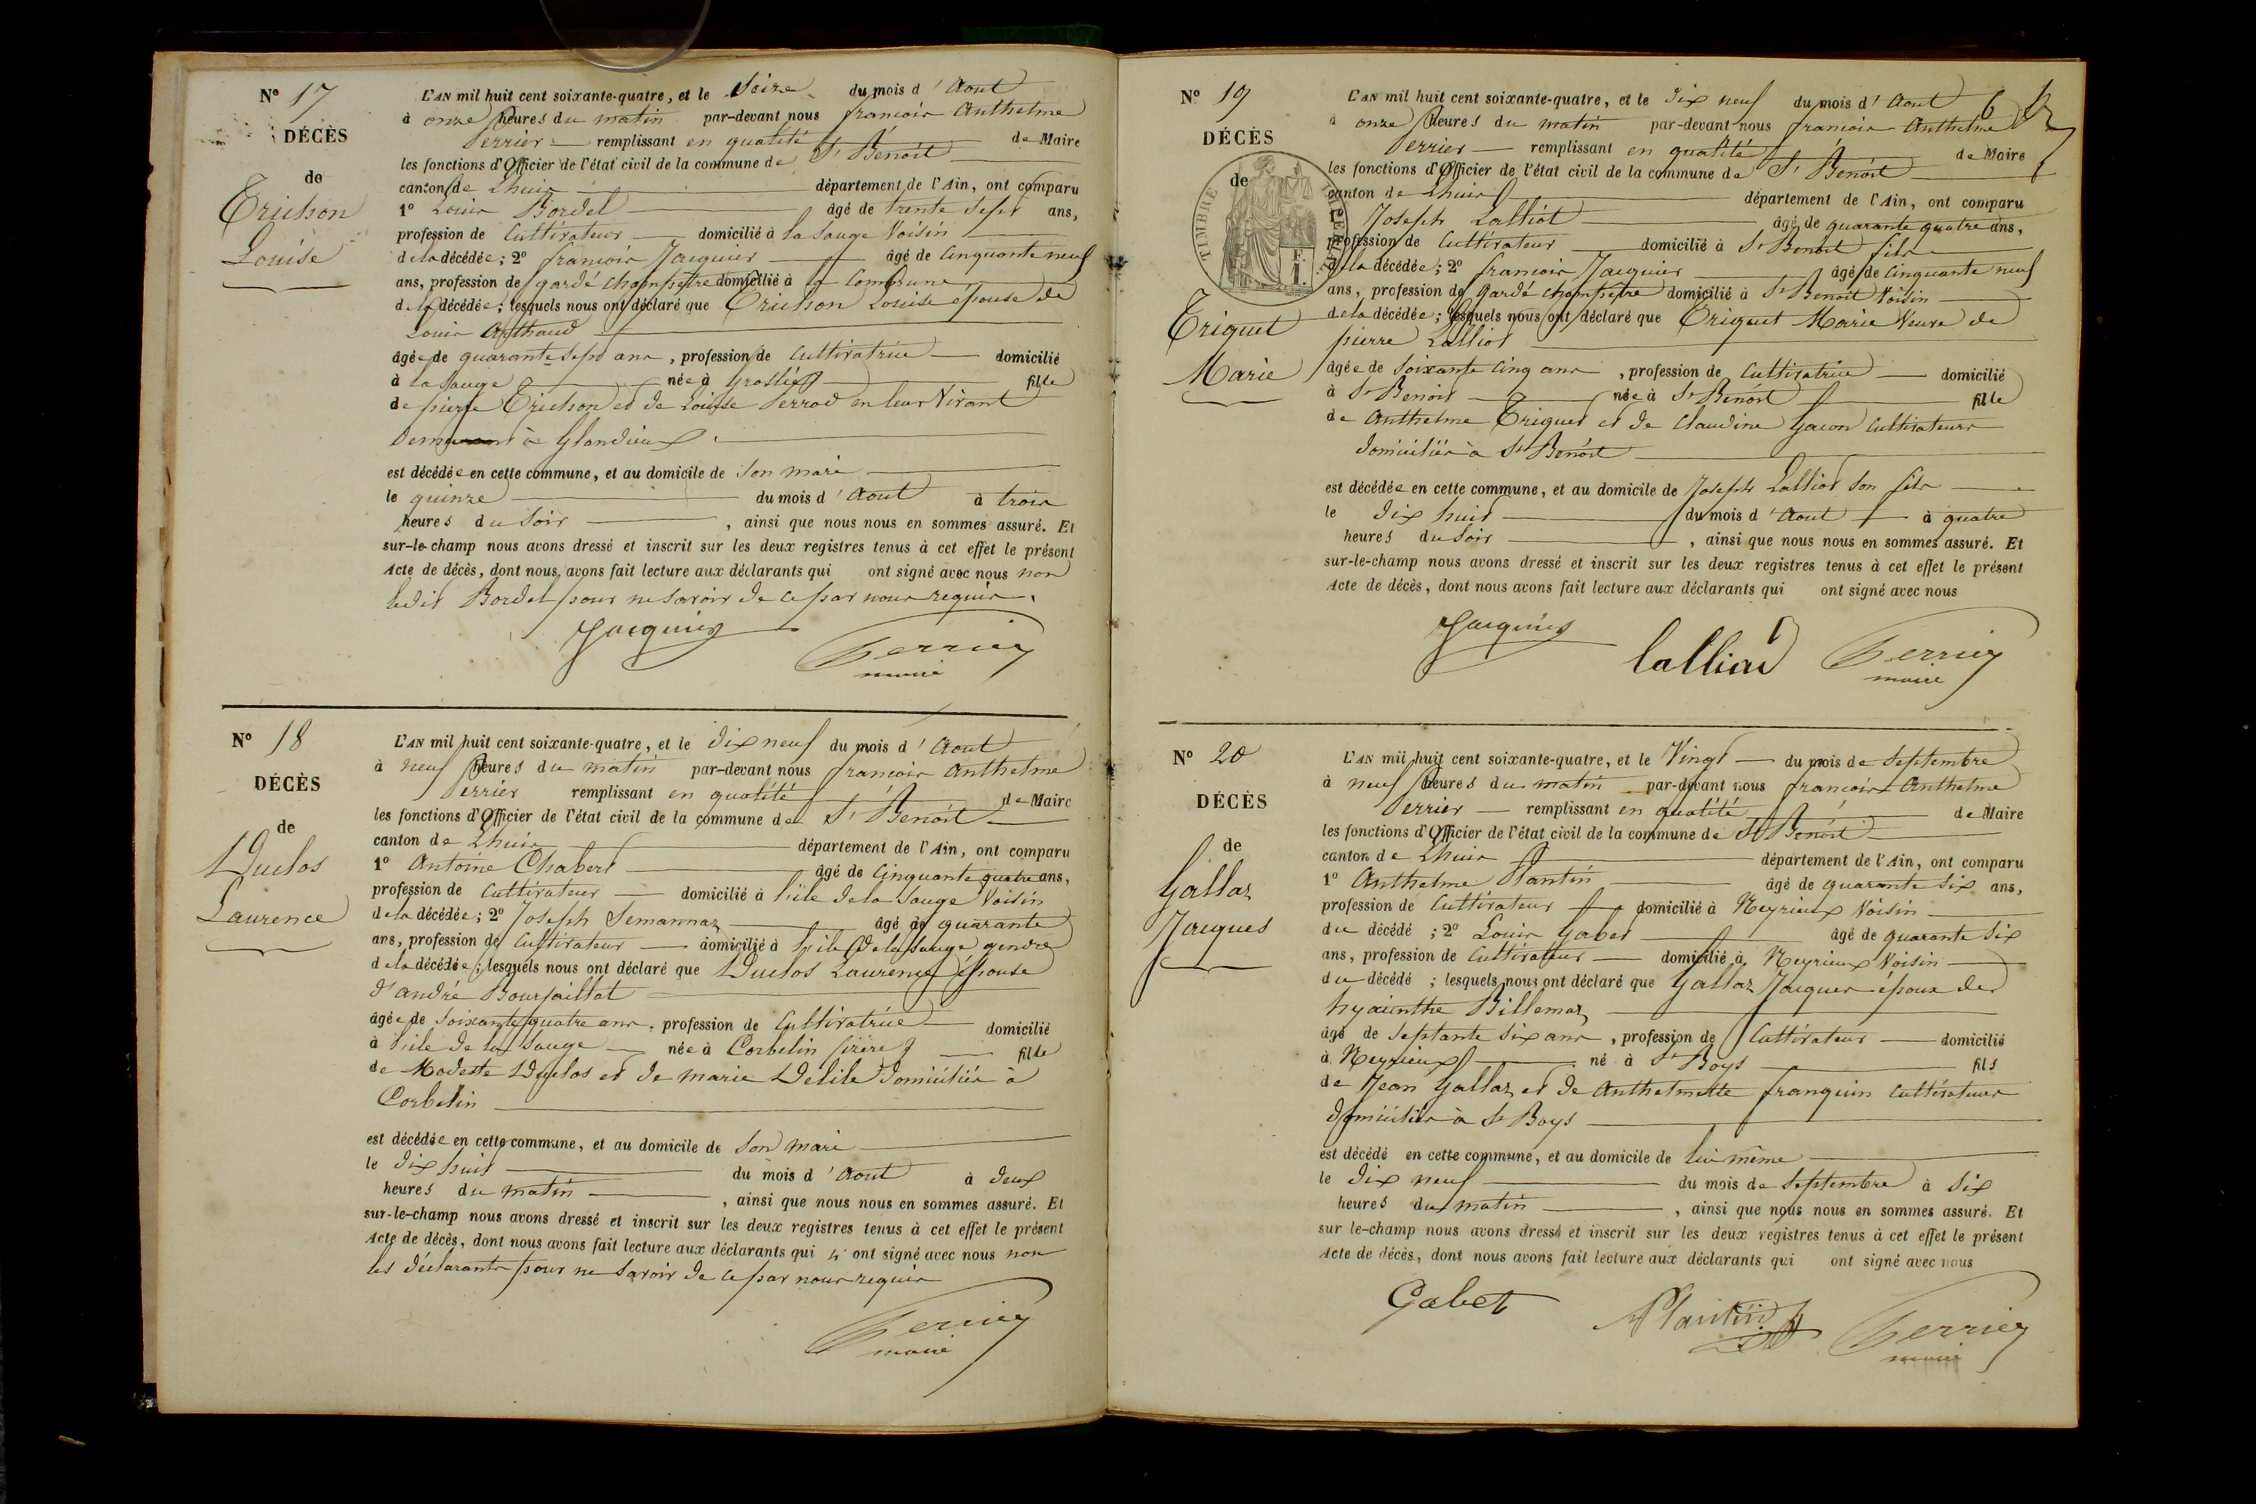 N° 17
DÉCÈS
de
Trichon
Louise
L'AN mil huit cent soixante-quatre, et le Seize du mois d'Aout
à onze heures du matin par-devant nous françois Anthelme
Perrier remplissant en qualité de Maire
les fonctions d'Officier de l'état civil de la commune de St Benoit
canton de Lhuis département de l'Ain, ont comparu
1° Louis Bordel âgé de trente Sept ans,
profession de Cultivateur domicilié à la Sauge Voisin
de la décédée; 2° françois Jacquier âgé de Cinquante neuf
ans, profession de gardé champêtre domicilié à la Commune
de la décédée; lesquels nous ont déclaré que Trichon Louise épouse de
Louis Arthaud
âgée de quarante Sept ans, profession de Cultivatrice domicilié
à la Sauge née à Groslée fille
de pierre Trichon et de Louise Perrod en leur Vivant
Demeurant à Glandieux
est décédée en cette commune, et au domicile de Son mari
le quinze du mois d'Aout à trois
heures du Soir, ainsi que nous nous en sommes assuré. Et
sur-le-champ nous avons dressé et inscrit sur les deux registres tenus à cet effet le présent
Acte de décès, dont nous avons fait lecture aux déclarants qui ont signé avec nous non
ledit Bordel pour ne Savoir de ce par nous requis.
Jacquier Perrier
maire
N° 18
DÉCÈS
de
Duclos
Laurence
L'AN mil huit cent soixante-quatre, et le Dix neuf du mois d'Aout
à neuf heures du matin par-devant nous françois Anthelme
Perrier remplissant en qualité de Maire
les fonctions d'Officier de l'état civil de la commune de St Benoit
canton de Lhuis département de l'Ain, ont comparu
1° Antoine Chabert âgé de Cinquante quatre ans,
profession de Cultivateur domicilié à l'ile de la Sauge Voisin
de la décédée; 2° Joseph Semannaz âgé de quarante
ans, profession de Cultivateur domicilié à l'ile de la Sauge gendre
de la décédée; lesquels nous ont déclaré que Duclos Laurence épouse
d'andré Bourjaillat
âgée de Soixante quatre ans, profession de Cultivatrice domicilié
à l'ile de la Sauge née à Corbelin (isère) fille
de Modeste Duclos et de marie Delile Domiciliés à
Corbelin
est décédée en cette commune, et au domicile de Son mari
le Dix huit du mois d'Aout à Deux
heures du matin, ainsi que nous nous en sommes assuré. Et
sur-le-champ nous avons dressé et inscrit sur les deux registres tenus à cet effet le présent
Acte de décès, dont nous avons fait lecture aux déclarants qui ont signé avec nous non
les déclarants pour ne Savoir de ce par nous requis
Perrier
maire
N° 19
DÉCÈS
de
TIMBRE IMPERIAL
Triquet
Marie
6
L'AN mil huit cent soixante-quatre, et le Dix neuf du mois d'Aout
à onze heures du matin par-devant nous françois Anthelme
Perrier remplissant en qualité de Maire
les fonctions d'Officier de l'état civil de la commune de St Benoit
canton de Lhuis département de l'Ain, ont comparu
1° Joseph Lalliot âgé de quarante quatre ans,
profession de Cultivateur domicilié à St Benoit fils
de la décédée; 2° françois Jacquier âgé de Cinquante neuf
ans, profession de gardé champêtre domicilié à St Benoit Voisin
de la décédée; lesquels nous ont déclaré que Triquet Marie Veuve de
pierre Lalliot
âgée de Soixante Cinq ans, profession de Cultivatrice domicilié
à St Benoit née à St Benoit fille
de Anthelme Triquet et de Claudine Gacon Cultivateurs
Domiciliés à St Benoit
est décédée en cette commune, et au domicile de Joseph Lalliot Son fils
le Dix huit du mois d'Aout à quatre
heures du Soir, ainsi que nous nous en sommes assuré. Et
sur-le-champ nous avons dressé et inscrit sur les deux registres tenus à cet effet le présent
Acte de décès, dont nous avons fait lecture aux déclarants qui ont signé avec nous
Jacquier lalliat Perrier
maire
N° 20
DÉCÈS
de
Gallaz
Jacques
L'AN mil huit cent soixante-quatre, et le Vingt du mois de Septembre
à neuf heures du matin par-devant nous françois Anthelme
Perrier remplissant en qualité de Maire
les fonctions d'Officier de l'état civil de la commune de St Benoit
canton de Lhuis département de l'Ain, ont comparu
1° Anthelme Plantin âgé de quarante Six ans,
profession de Cultivateur domicilié à Neyrieux Voisin
du décédé; 2° Louis Gabet âgé de quarante Six
ans, profession de Cultivateur domicilié à Neyrieux Voisin
du décédé; lesquels nous ont déclaré que Gallaz Jacques époux de
hyacinthe Billemaz
âgé de Septante Six ans, profession de Cultivateur domicilié
à Neyrieux né à St Boys fils
de Jean Gallaz et de Anthelmette franquin Cultivateurs
Domiciliés à St Boys
est décédé en cette commune, et au domicile de lui même
le Dix neuf du mois de Septembre à Six
heures du matin, ainsi que nous nous en sommes assuré. Et
sur le-champ nous avons dressé et inscrit sur les deux registres tenus à cet effet le présent
Acte de décès, dont nous avons fait lecture aux déclarants qui ont signé avec nous
Gabet APlantin Perrier
maire